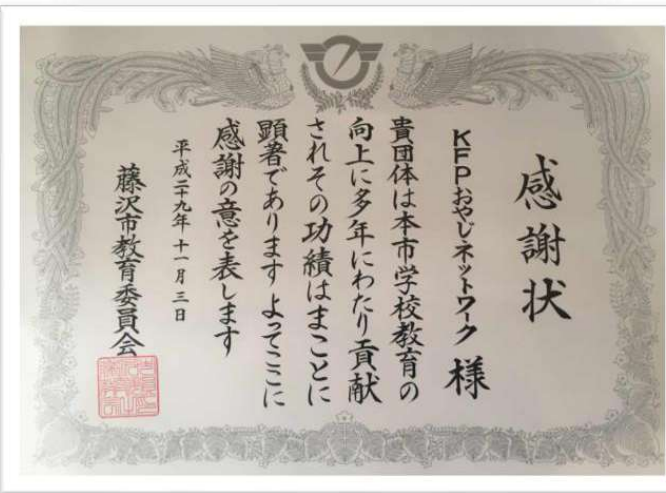 感謝状
KFPおやじネットワーク 様
貴団体は本市学校教育の
向上に多年にわたり貢献
されその功績はまことに
顕著であります よってここに
感謝の意を表します
平成二十九年十一月三日
藤沢市教育委員会